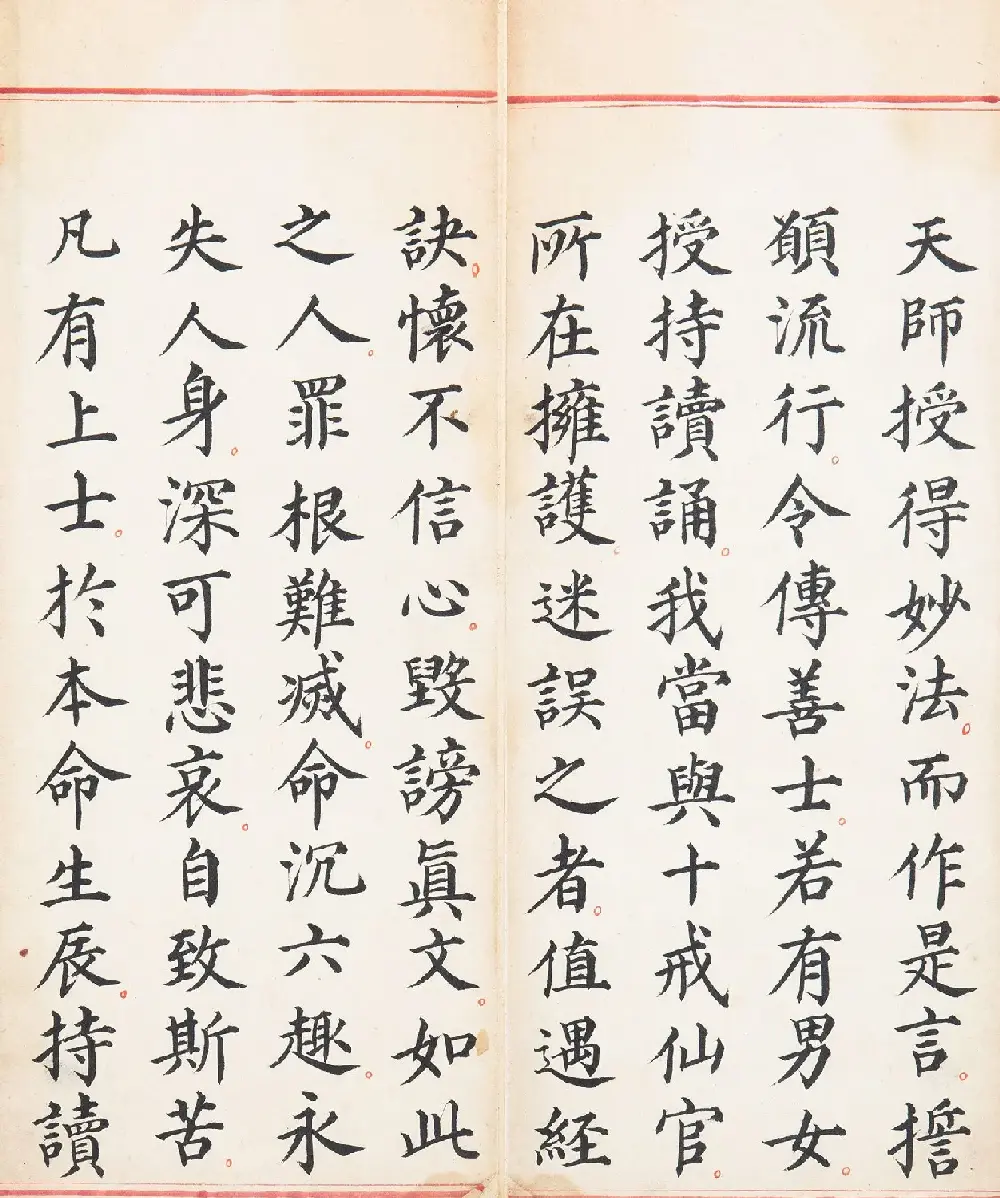 天師授得妙法而作是言擔
願流行令傳善士若有男女
授持讀誦我當與十戒仙官
所在擁護迷誤之者值遇經
訣懷不信心毀謗眞文如此
之人罪根難滅命沉六趣永
失人身深可悲哀自致斯苦
凡有上士於本命生辰持讀